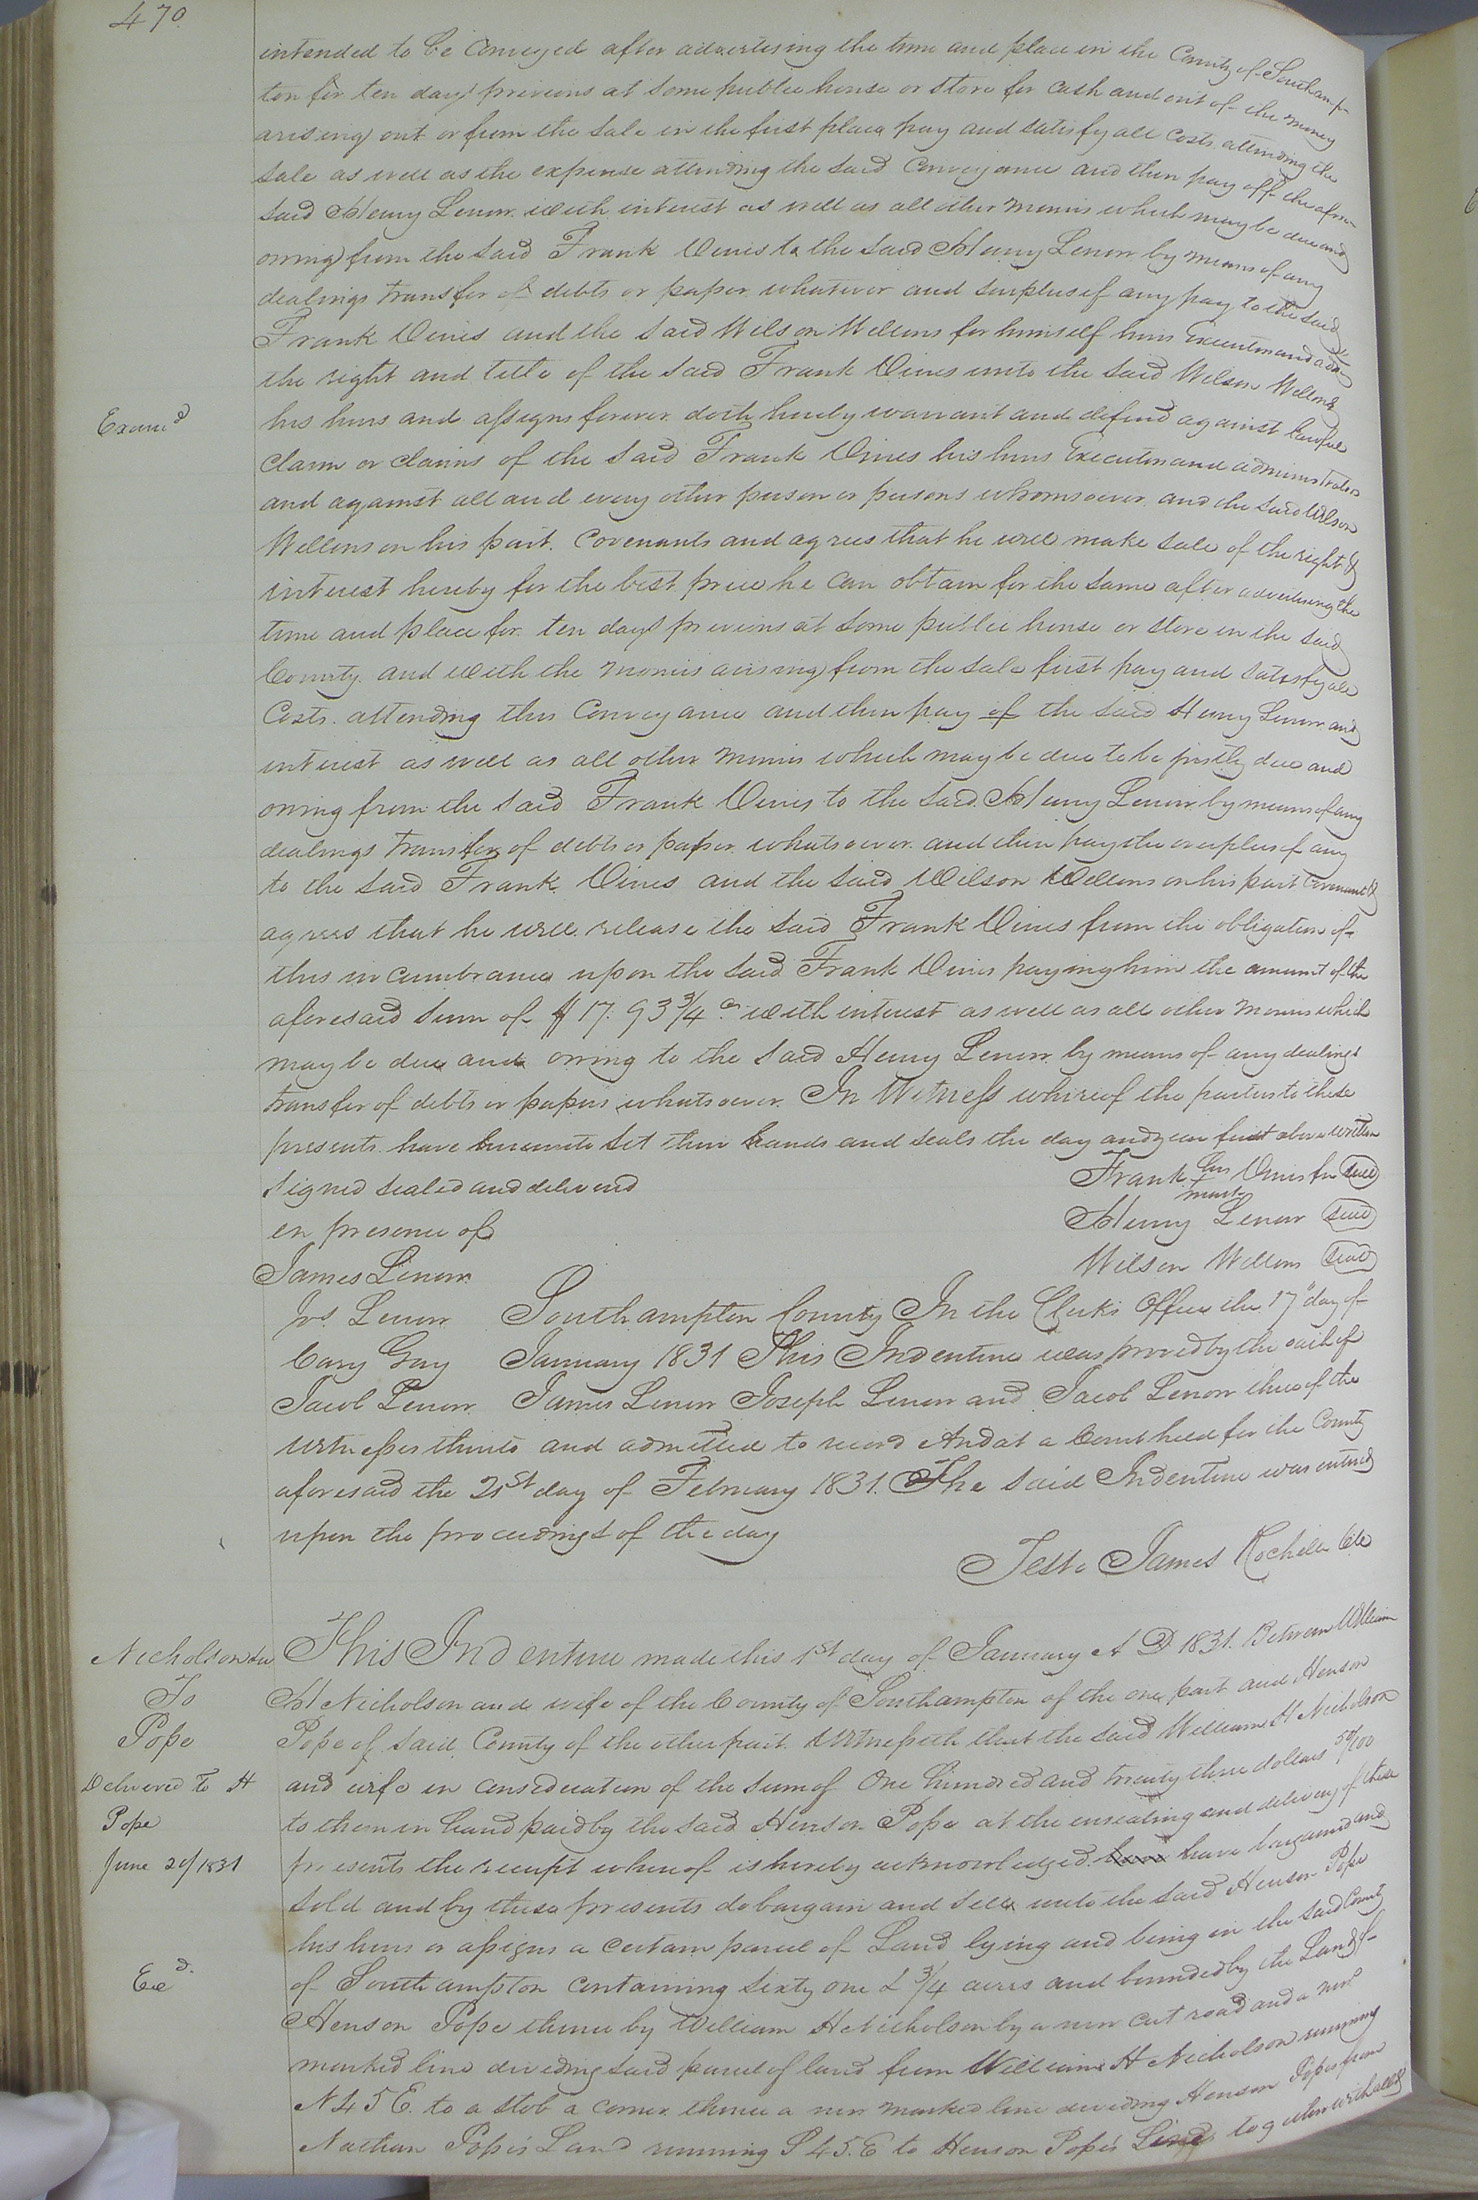 470.
intended to be conveyed after advertising the time and place in the County of Southamp-
ton for ten days previous at some public house or store for cash and out of the money
arising out or from the sale in the first place pay and satisfy all costs attending the
sale as well as the expense attending the said Conveyance and then pay off the afore
said Henry Lenow with interest as well as all other monies which may be due and
owing from the said Frank Vines to the said Henry Lenow by means of any
dealings transfer of debts or paper whatever and surplus if any pay to the said
Frank Vines and the said Wilson Wellons for himself his Executors and adm
the right and title of the said Frank Vines unto the said Wilson Wellons
Examd
his heirs and assigns forever doth hereby warrant and defend against lawful
claim or claims of the said Frank Vines his heirs Executors and administrators
and against all and every other person or persons whomsoever and the said Wilson
Wellons on his part. Covenants and agrees that he will make sale of the right &
interest hereby for the best price he can obtain for the same after advertising the
time and place for ten days previous at some public house or store in the said
County. and with the monies arising from the sale first pay and satisfy all
Costs attending this Conveyance and then pay of the said Henry Lenow and
interest as well as all other monies which may be due to be justly due and
owing from the said Frank Vines to the said Henry Lenow by means of any
dealings transfer of debts or paper whatsoever and then pay the overplus if any
to the said Frank Vines and the said Wilson Wellons on his part Covenants &
agrees that he will release the said Frank Vines from the obligation of
this incumbrance upon the said Frank Vines paying him the amount of the
aforesaid sum of $17.93 3/4 cs with interest as well as all other monies which
may be due and owing to the said Henry Lenow by means of any dealings
transfer of debts or papers whatsoever. In Witness whereof the parties to these
presents have hereunto set their hands and seals the day and year first above written
Signed sealed and delivered
Frank his mark Vines seal
in presence of
Henry Lenow seal
James Lenow
Wilson Wellons seal
Jos. Lenow Southampton County In the Clerks Office the 17" day of
Cary Gay January 1831 This Indenture was proved by the oath of
Jacob Lenow James Lenow Joseph Lenow and Jacob Lenow three of the
witnesses thereto and admitted to record And at a Court held for the County
aforesaid the 21st day of February 1831. The said Indenture was entered
upon the proceedings of the day
Teste James Rochelle Clk
Nicholson &ux
To
Pope
Delivered to H
Pope
June 20/1831
This Indenture made this 1st day of January A D 1831. Between William
H Nicholson and wife of the County of Southampton of the one part and Henson
Pope of said County of the other part. Witnesseth that the said William H Nicholson
and wife in consideration of the sum of One hundred and twenty three dollars 50/100
to them in hand paid by the said Henson Pope at the ensealing and delivery of these
presents the receipt whereof is hereby acknowledged have bargained and
sold and by these presents do bargain and sell unto the said Henson Pope
his heirs or assigns a certain parcel of Land lying and being in the said County
Exd.
of Southampton containing sixty one & 3/4 acres and bounded by the Lands of
Henson Pope thence by William H Nicholson by a new cut road and a new
marked line dividing said parcel of land from William H Nicholson running
N 45 E. to a stob a corner thence a new marked line dividing Henson Popes from
Nathan Pope's Land running S 45. E to Henson Pope's Line together with all &